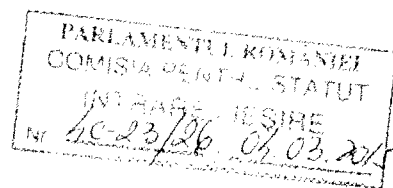 PARLAMENTUL ROMÂNIEI
COMISIA PENTRU STATUT
INTRARE IESIRE
Nr 4C-23/26 04.03.2015